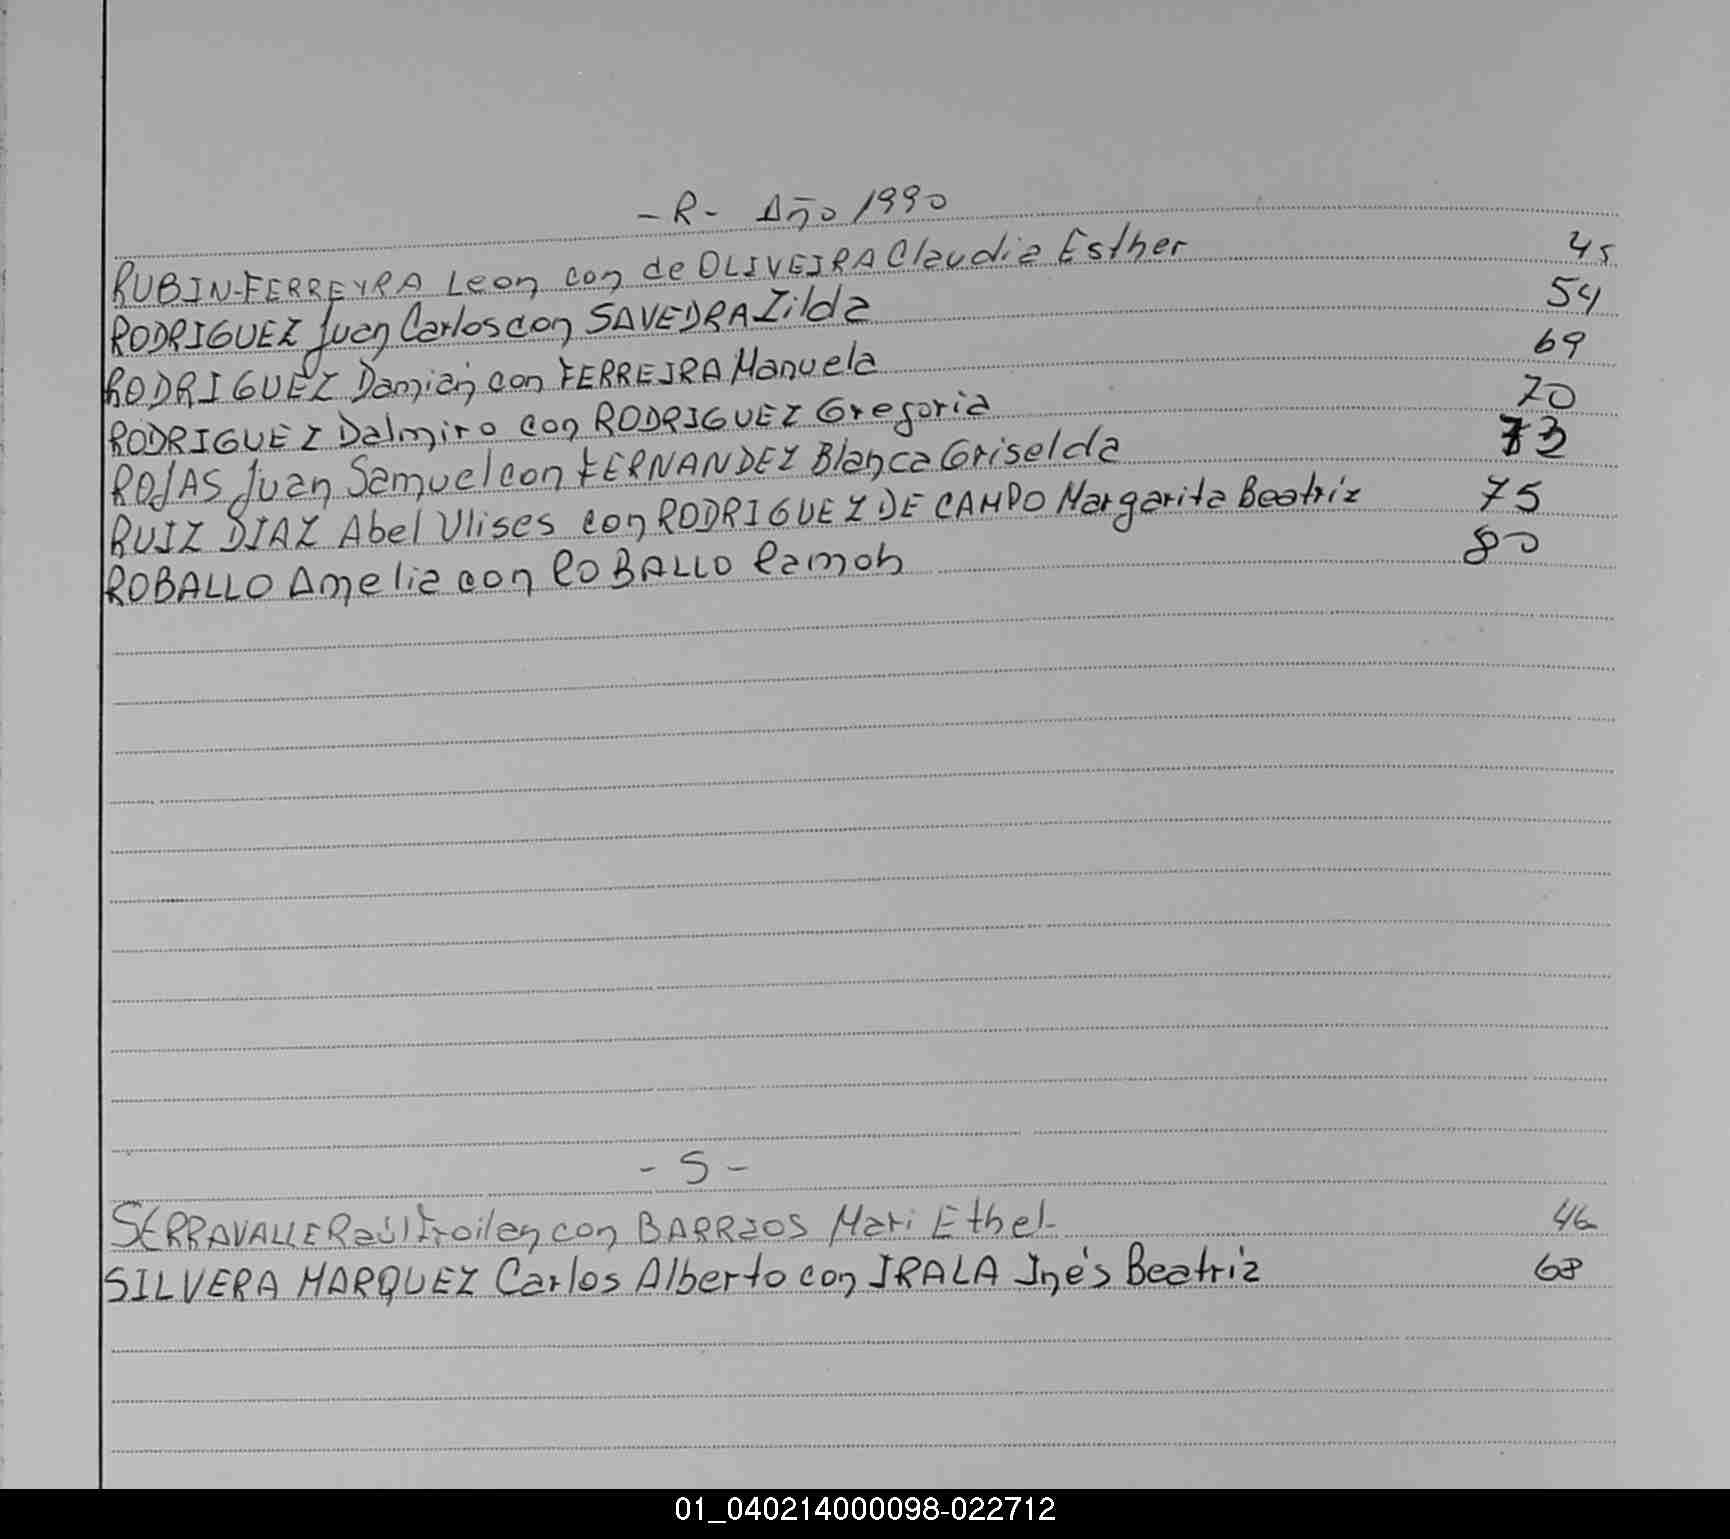 -R- Año 1990
RUBIN-FERREYRA Leon con de OLIVEIRA Claudia Esther 45
RODRIGUEZ Juan Carlos con SAVEDRA Zilda 54
RODRIGUEZ Damian con FERREIRA Manuela 69
RODRIGUEZ Dalmiro con RODRIGUEZ Gregoria 70
ROJAS Juan Samuel con FERNANDEZ Blanca Griselda 73
RUIZ DIAZ Abel Ulises con RODRIGUEZ DE CAMPO Margarita Beatriz 75
ROBALLO Amelia con ROBALLO Ramon 80
- S -
SERRAVALLE Raúl Froilan con BARRIOS Mari Ethel 46
SILVERA MARQUEZ Carlos Alberto con IRALA Inés Beatriz 68
01_040214000098-022712